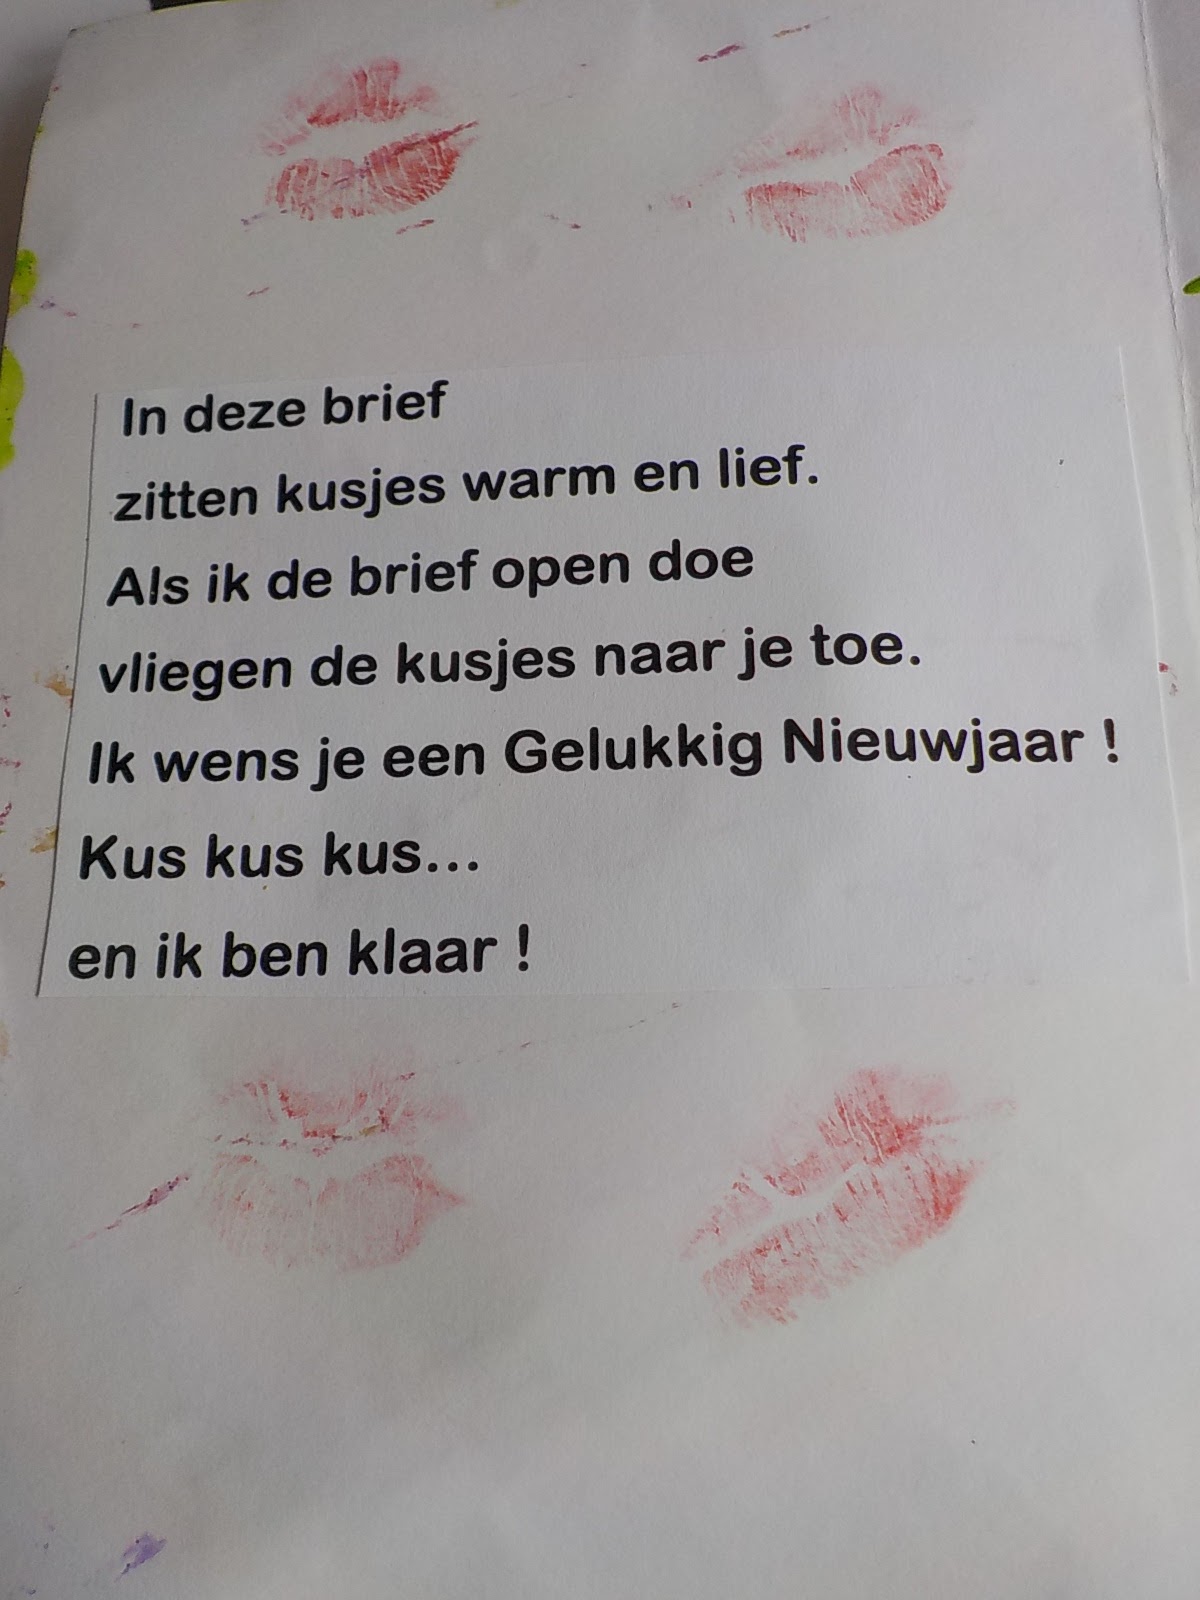 In deze brief
zitten kusjes warm en lief.
Als ik de brief open doe
vliegen de kusjes naar je toe.
Ik wens je een Gelukkig Nieuwjaar !
Kus kus kus...
en ik ben klaar !